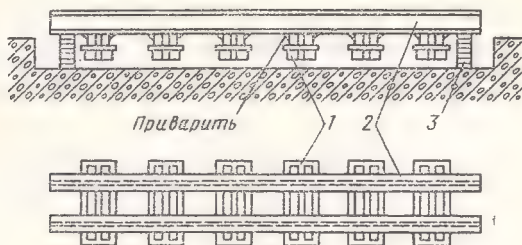 Приварить 1 2 3